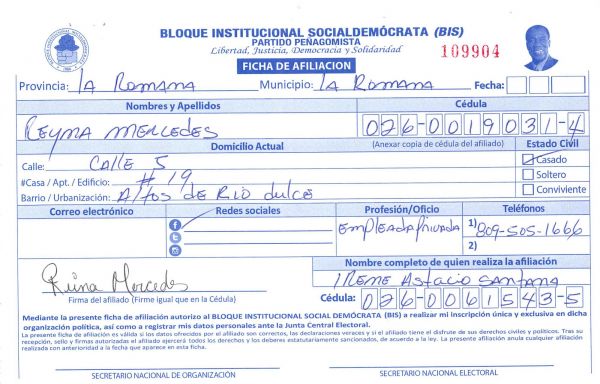 BLOQUE INSTITUCIONAL SOCIALDEMÓCRATA (BIS)
PARTIDO PEÑAGOMISTA
Libertad, Justicia, Democracia y Solidaridad
109904
FICHA DE AFILIACION
Provincia: LA ROMANA Municipio: LA ROMANA Fecha:
Nombres y Apellidos Cédula
REYNA MERCEDES 026-0019031-4
Domicilio Actual (Anexar copia de cédula del afiliado) Estado Civil
Calle: CALLE 5 Casado
#Casa / Apt. / Edificio: #19 Soltero
Barrio / Urbanización: Altos DE RIO dulce Conviviente
Correo electrónico Redes sociales Profesión/Oficio Teléfonos
EmpleadaPrivada 1) 809-505-1666
2)
Nombre completo de quien realiza la afiliación
Reina Mercedes IRENE Astacio Santana
Firma del afiliado (Firme igual que en la Cédula) Cédula: 026-0061543-5
Mediante la presente ficha de afiliación autorizo al BLOQUE INSTITUCIONAL SOCIAL DEMÓCRATA (BIS) a realizar mi inscripción única y exclusiva en dicha
organización política, así como a registrar mis datos personales ante la Junta Central Electoral.
La presente afiliación es válida si los datos ofrecidos por el afiliado son correctos, las declaraciones veraces y si el afiliado tiene el disfrute de sus derechos civiles y políticos. Tras su
recepción, sello y firmas autorizadas el afiliado ejercerá todos los derechos y los deberes estatutariamente sancionados, de acuerdo a la ley. La presente afiliación anula cualquier afiliación
realizada con anterioridad a la fecha que aparece en esta ficha.
SECRETARIO NACIONAL DE ORGANIZACIÓN SECRETARIO NACIONAL ELECTORAL